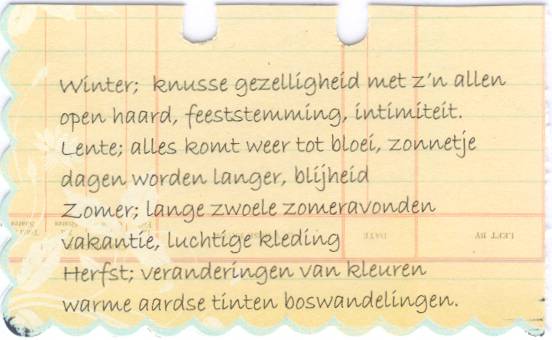 Winter; knusse gezelligheid met z'n allen
open haard, feeststemming, intimiteit.
Lente; alles komt weer tot bloei, zonnetje
dagen worden langer, blijheid
Zomer; lange zwoele zomeravonden
vakantie, luchtige kleding
Herfst; veranderingen van kleuren
warme aardse tinten boswandelingen.
DATE
LEFT BY